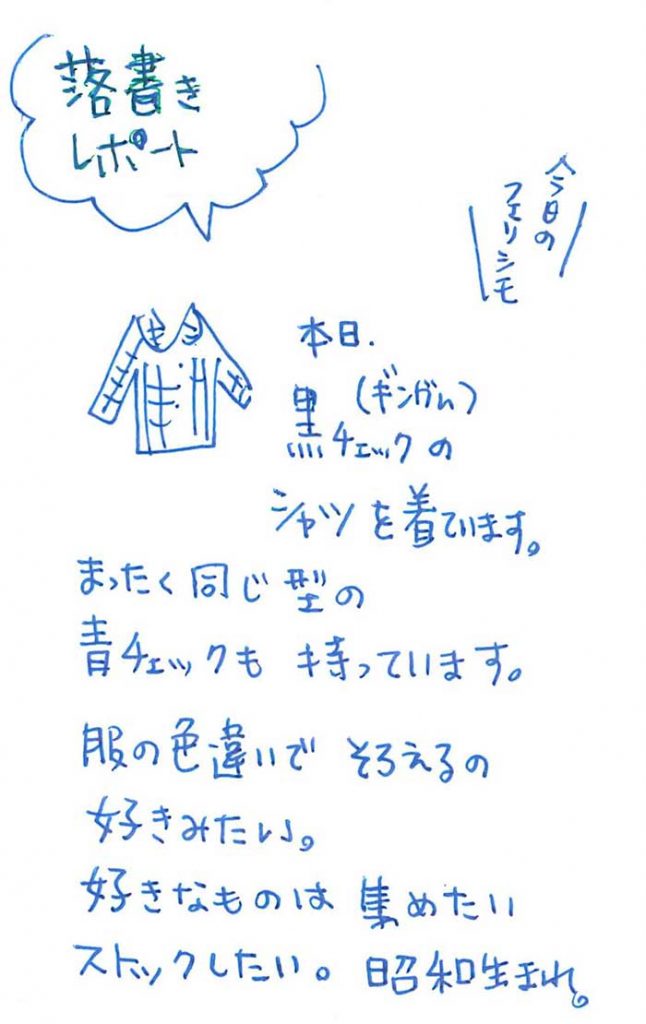 落書き
レポート
今日の
フェリシモ
本日.
黒(ギンガム)チェックの
シャツを着ています。
まったく同じ型の
青チェックも 持っています。
服の色違いで そろえるの
好きみたい。
好きなものは 集めたい
ストックしたい。 昭和生まれ。